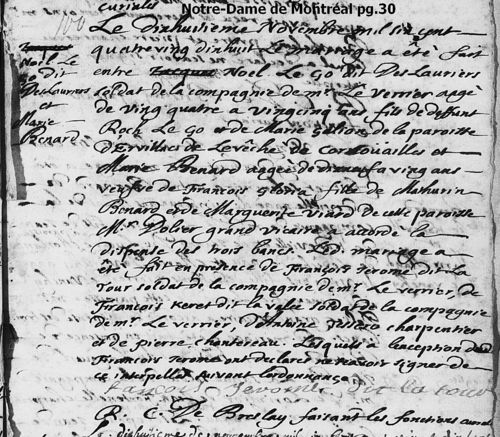 Notre-Dame de Montréal pg.30
curialle
100
Noel Le
Go dit
DesLauriers
et
Marie
Benard
Le dixhuitieme Novembre mil six cent
quatre ving dixhuit Le mariage a été fait
entre Noel Le Go dit DesLauriers
soldat de la compagnie de mr Le verrier aagé
de ving quatre a vingcinq ans fils de deffunt
Roch Le Go et de Marie de la paroisse
D'Ervillac de Levêché de Cornouailles et
Marie Benard aagée de ans
veufve de François fille de Mathurin
Benard et de Marguerite Viard De cette paroisse
Mr Dolier grand vicaire a accordé la
dispense des trois bancs Led mariage a
été fait en presence de François Jerome dit La
Tour soldat de la compagnie de mr Le verrier, de
François Keret dit la soldat de la compagnie
de mr Le verrier, d'Antoine charpentier
et de pierre chantereau Lesquels a lexception de
François Jerome ont declaré ne scavoir signer de
ce interpellés suivant lordonnance
Jerome dit la tour
R. C. De Breslay faisant les fonctions
Le dixhuitieme de novembre mil